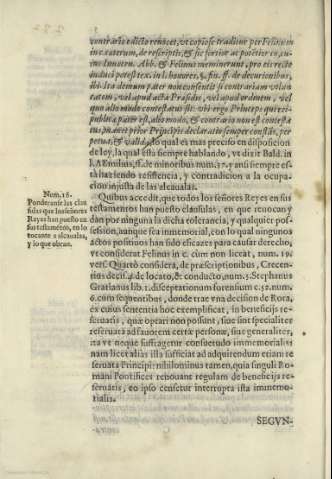 contrario edicto renocet, vt copiose traditur per Felinum in
induci potest tex. in l. honores, §. fin. ff. de decurionibus,
ibi. Ita demum pater non consentit si contrariam volun
tatem, vel apud acta Præsidis, vel apud ordinem, vel
quo alio modo contestatus sit: vbi ergo Princeps qui rei-
publicæ pater est, alio modo, & contrario non est contesta
tus, manet prior Principis declaratio semper constās, per
petua, & valida, lo qual es mas preciso en disposicion
de ley, la qual està siempre hablando, vt dixit Bald. in
l. Æmilius, ff. de minoribus num. 17. y ansi siempre es-
tà haziendo resistencia, y contradicion a la ocu-
pacion injusta de las alcaualas.
Num. 18.
Ponderanse las clau
sulas que los señores
Reyes han puesto en
su testamēto, en lo
tocante a alcaualas,
y lo que obran.
Quibus accedit, que todos los señores Reyes en sus
testamentos han puesto clausulas, en que reuocan y
dan por ninguna la dicha tolerancia, y qualquier pos-
session, aunque sea inmemorial, con lo qual ningunos
actos positiuos han sido eficazes para causar derecho,
vt considerat Felinus in c. cum non liceat, num. 19.
vers. Quartò considera, de præscriptionibus, Crecen-
tius decis. 4. de locato, & conducto, num. 5. Stephanus
Gratianus lib. 1. disceptationum forensium c. 52. num.
6. cum sequentibus, donde trae vna decision de Rota,
ex cuius sententia hoc exemplificat, in beneficijs re-
seruatis, quæ optari non possunt, siue sint specialiter
reseruata ad fauorem certæ personæ, siue generaliter,
ita vt neque suffragetur consuetudo immemorialis:
nam licet alias illa sufficiat ad adquirendum etiam re
seruata Principi: nihilominus tamen, quia singuli Ro
mani Pontifices renouant regulam de beneficijs re-
seruatis, eo ipso censetur interrupta ista immemo-
rialis.
SEGVN-